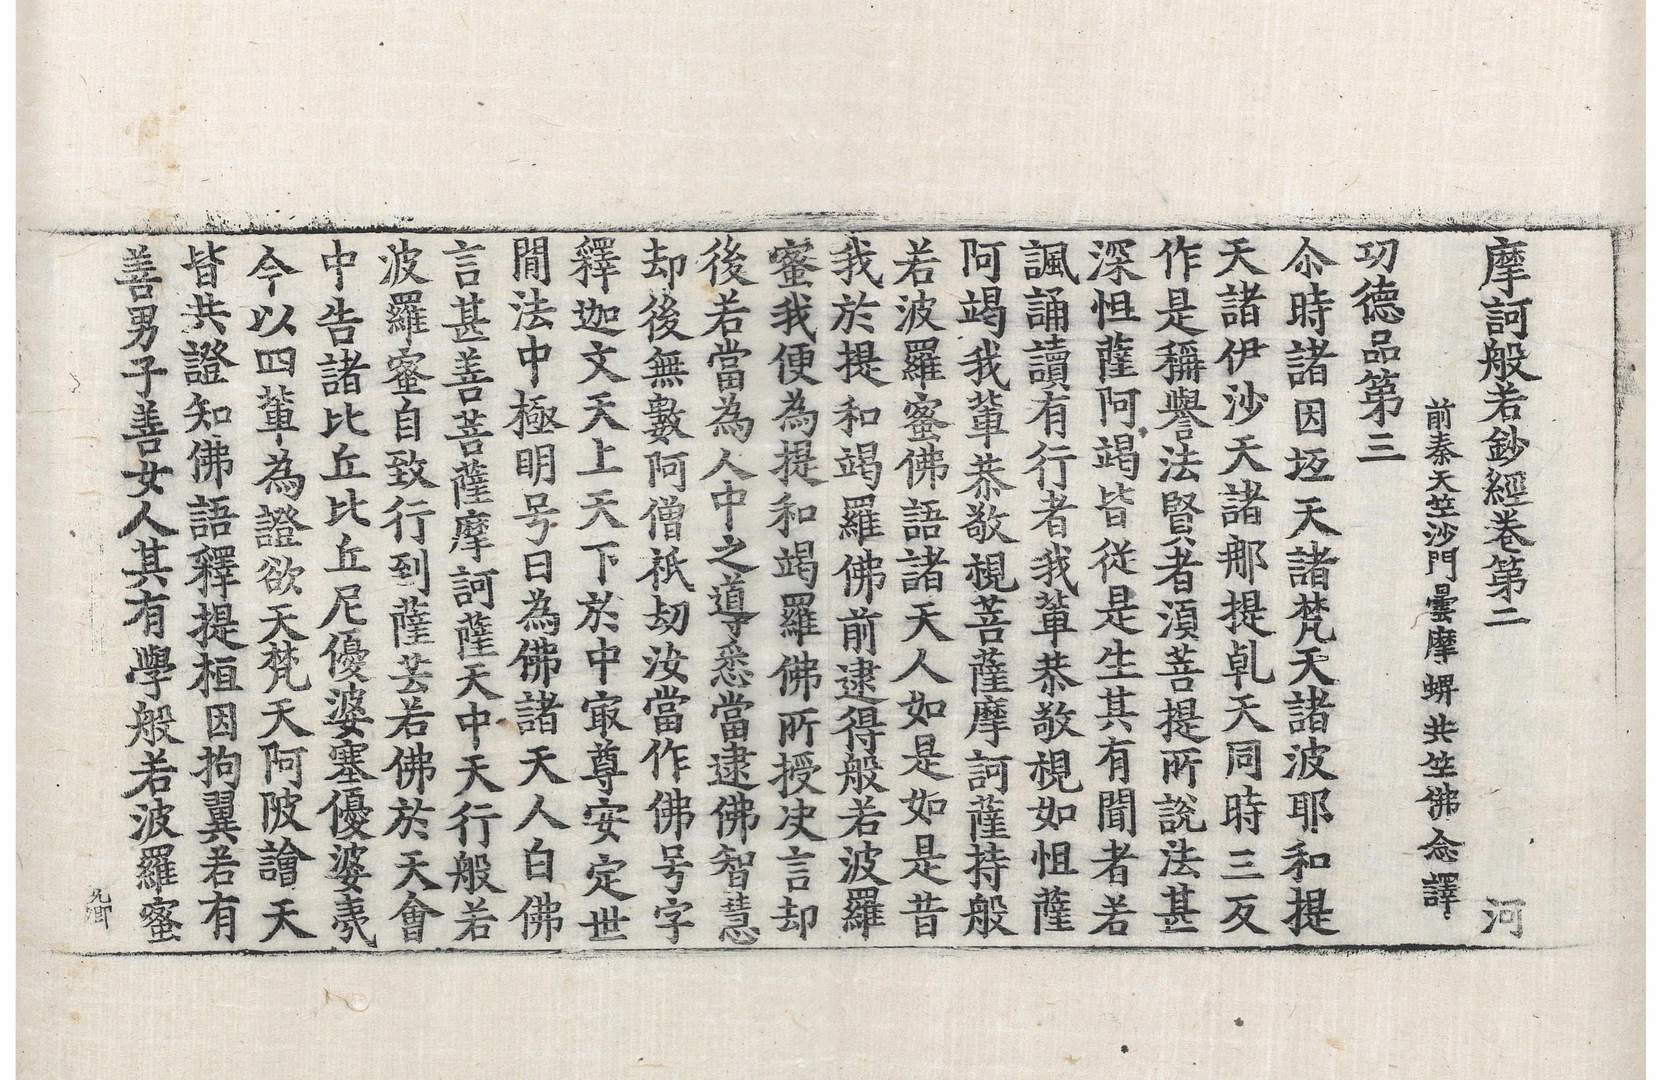 摩訶般若鈔經卷第二　河
前秦天竺沙門曇摩蜱共竺佛念譯
功德品第三
尒時諸因坻天諸梵天諸波耶和提
天諸伊沙天諸那提乹天同時三反
作是稱譽法賢者須菩提所說法甚
深怛薩阿竭皆從是生其有聞者若
諷誦讀有行者我輩恭敬視如怛薩
阿竭我輩恭敬視菩薩摩訶薩持般
若波羅蜜佛語諸天人如是如是昔
我於提和竭羅佛前逮得般若波羅
蜜我便為提和竭羅佛所授決言却
後若當為人中之導悉當逮佛智慧
却後無數阿僧祇劫汝當作佛号字
釋迦文天上天下於中㝡尊安定世
間法中極明号曰為佛諸天人白佛
言甚善菩薩摩訶薩天中天行般若
波羅蜜自致行到薩芸若佛於天會
中告諸比丘比丘尼優婆塞優婆夷
今以四輩為證欲天梵天阿陂譮天
皆共證知佛語釋提桓因拘翼若有
善男子善女人其有學般若波羅蜜